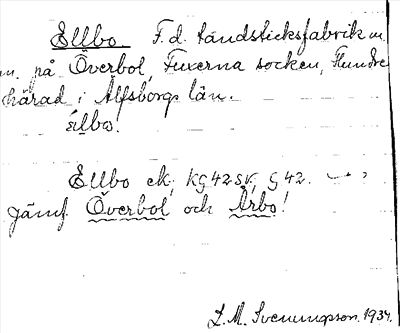 Ellbo. F.d. tändsticksfabrik m
m. på Överbol, Fuxerna socken, Flundre
härad i Älfsborgs län.
ellbω.
Ellbo ek, KG42SV, G42.
Jämf. Överbol och Årbo!
L. M. Svenungsson. 1934.